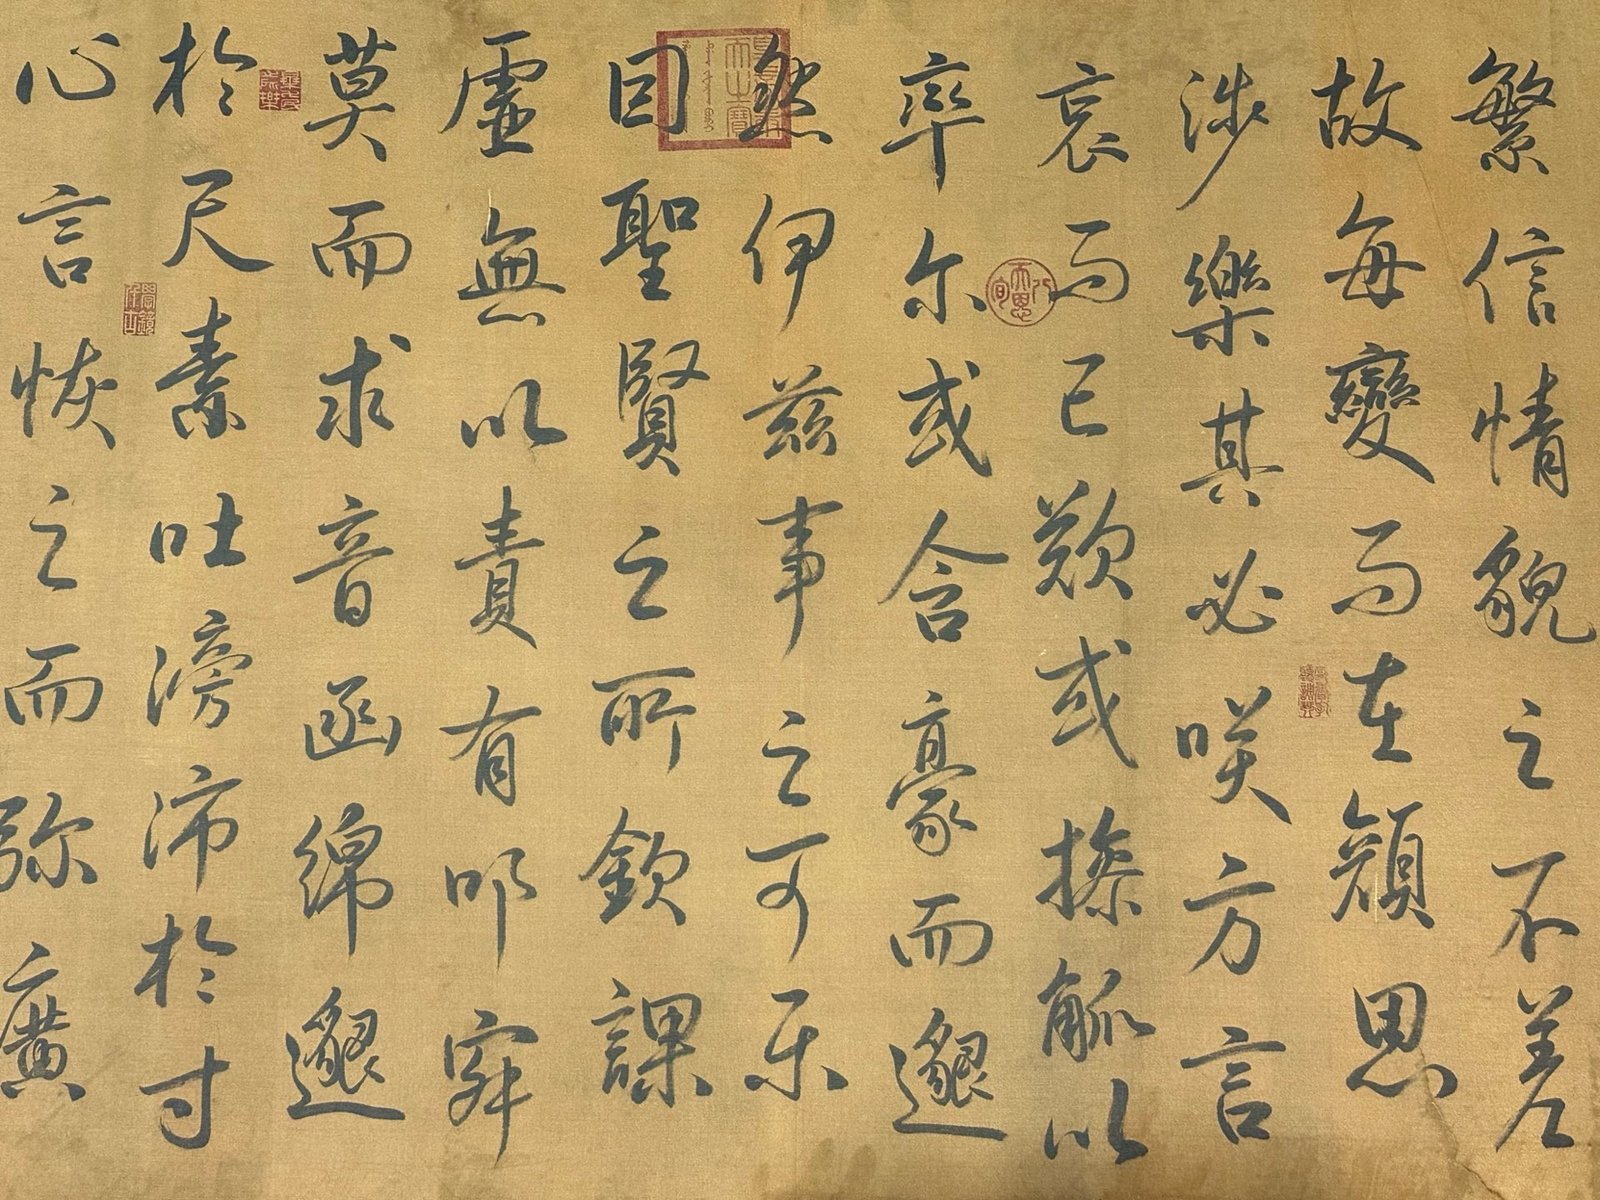 繁信情貌之不差
故每變而在顔思
涉樂其必咲方言
哀而已歎或操觚以
率尔或含豪而邈
然伊兹事之可乐
固聖賢之所欽課
虛無以責有叩寂
莫而求音函綿邈
於尺素吐滂沛於寸
心言恢之而弥廣